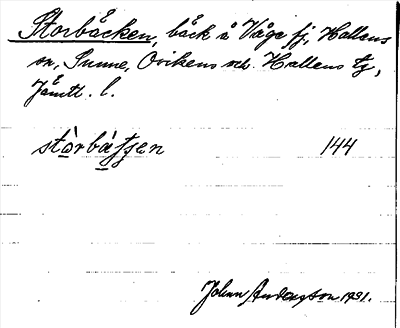 Storbäcken, bäck å Våge fj, Hallens
sn, Sunne, Ovikens och Hallens tg,
Jämtl. l.
stòrbàʃʃen 144
Johan Anderzson 1931.